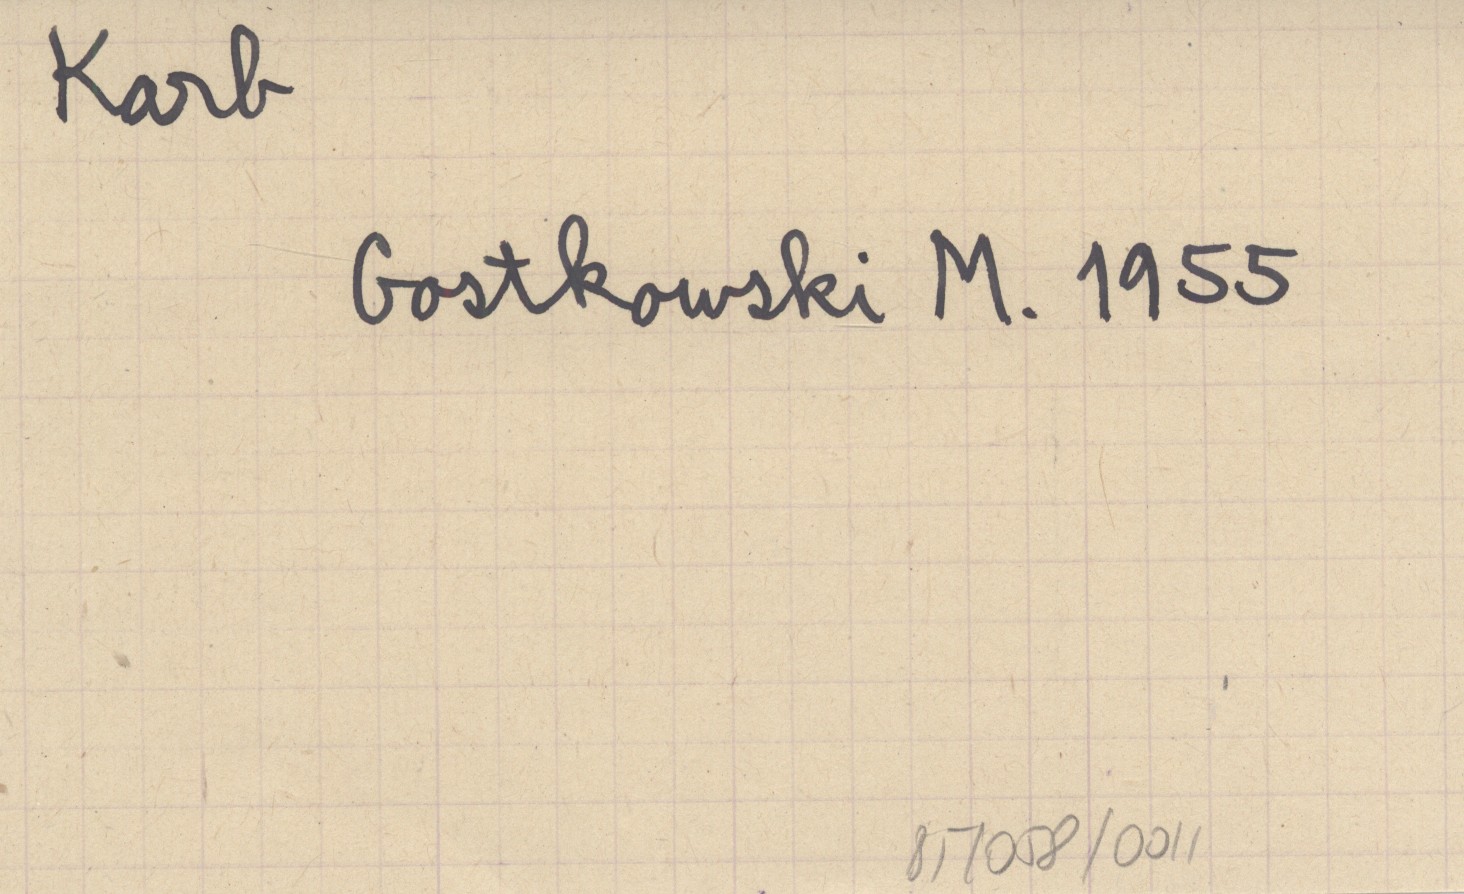 Karb
Gostkowski M. 1955
817058/0011